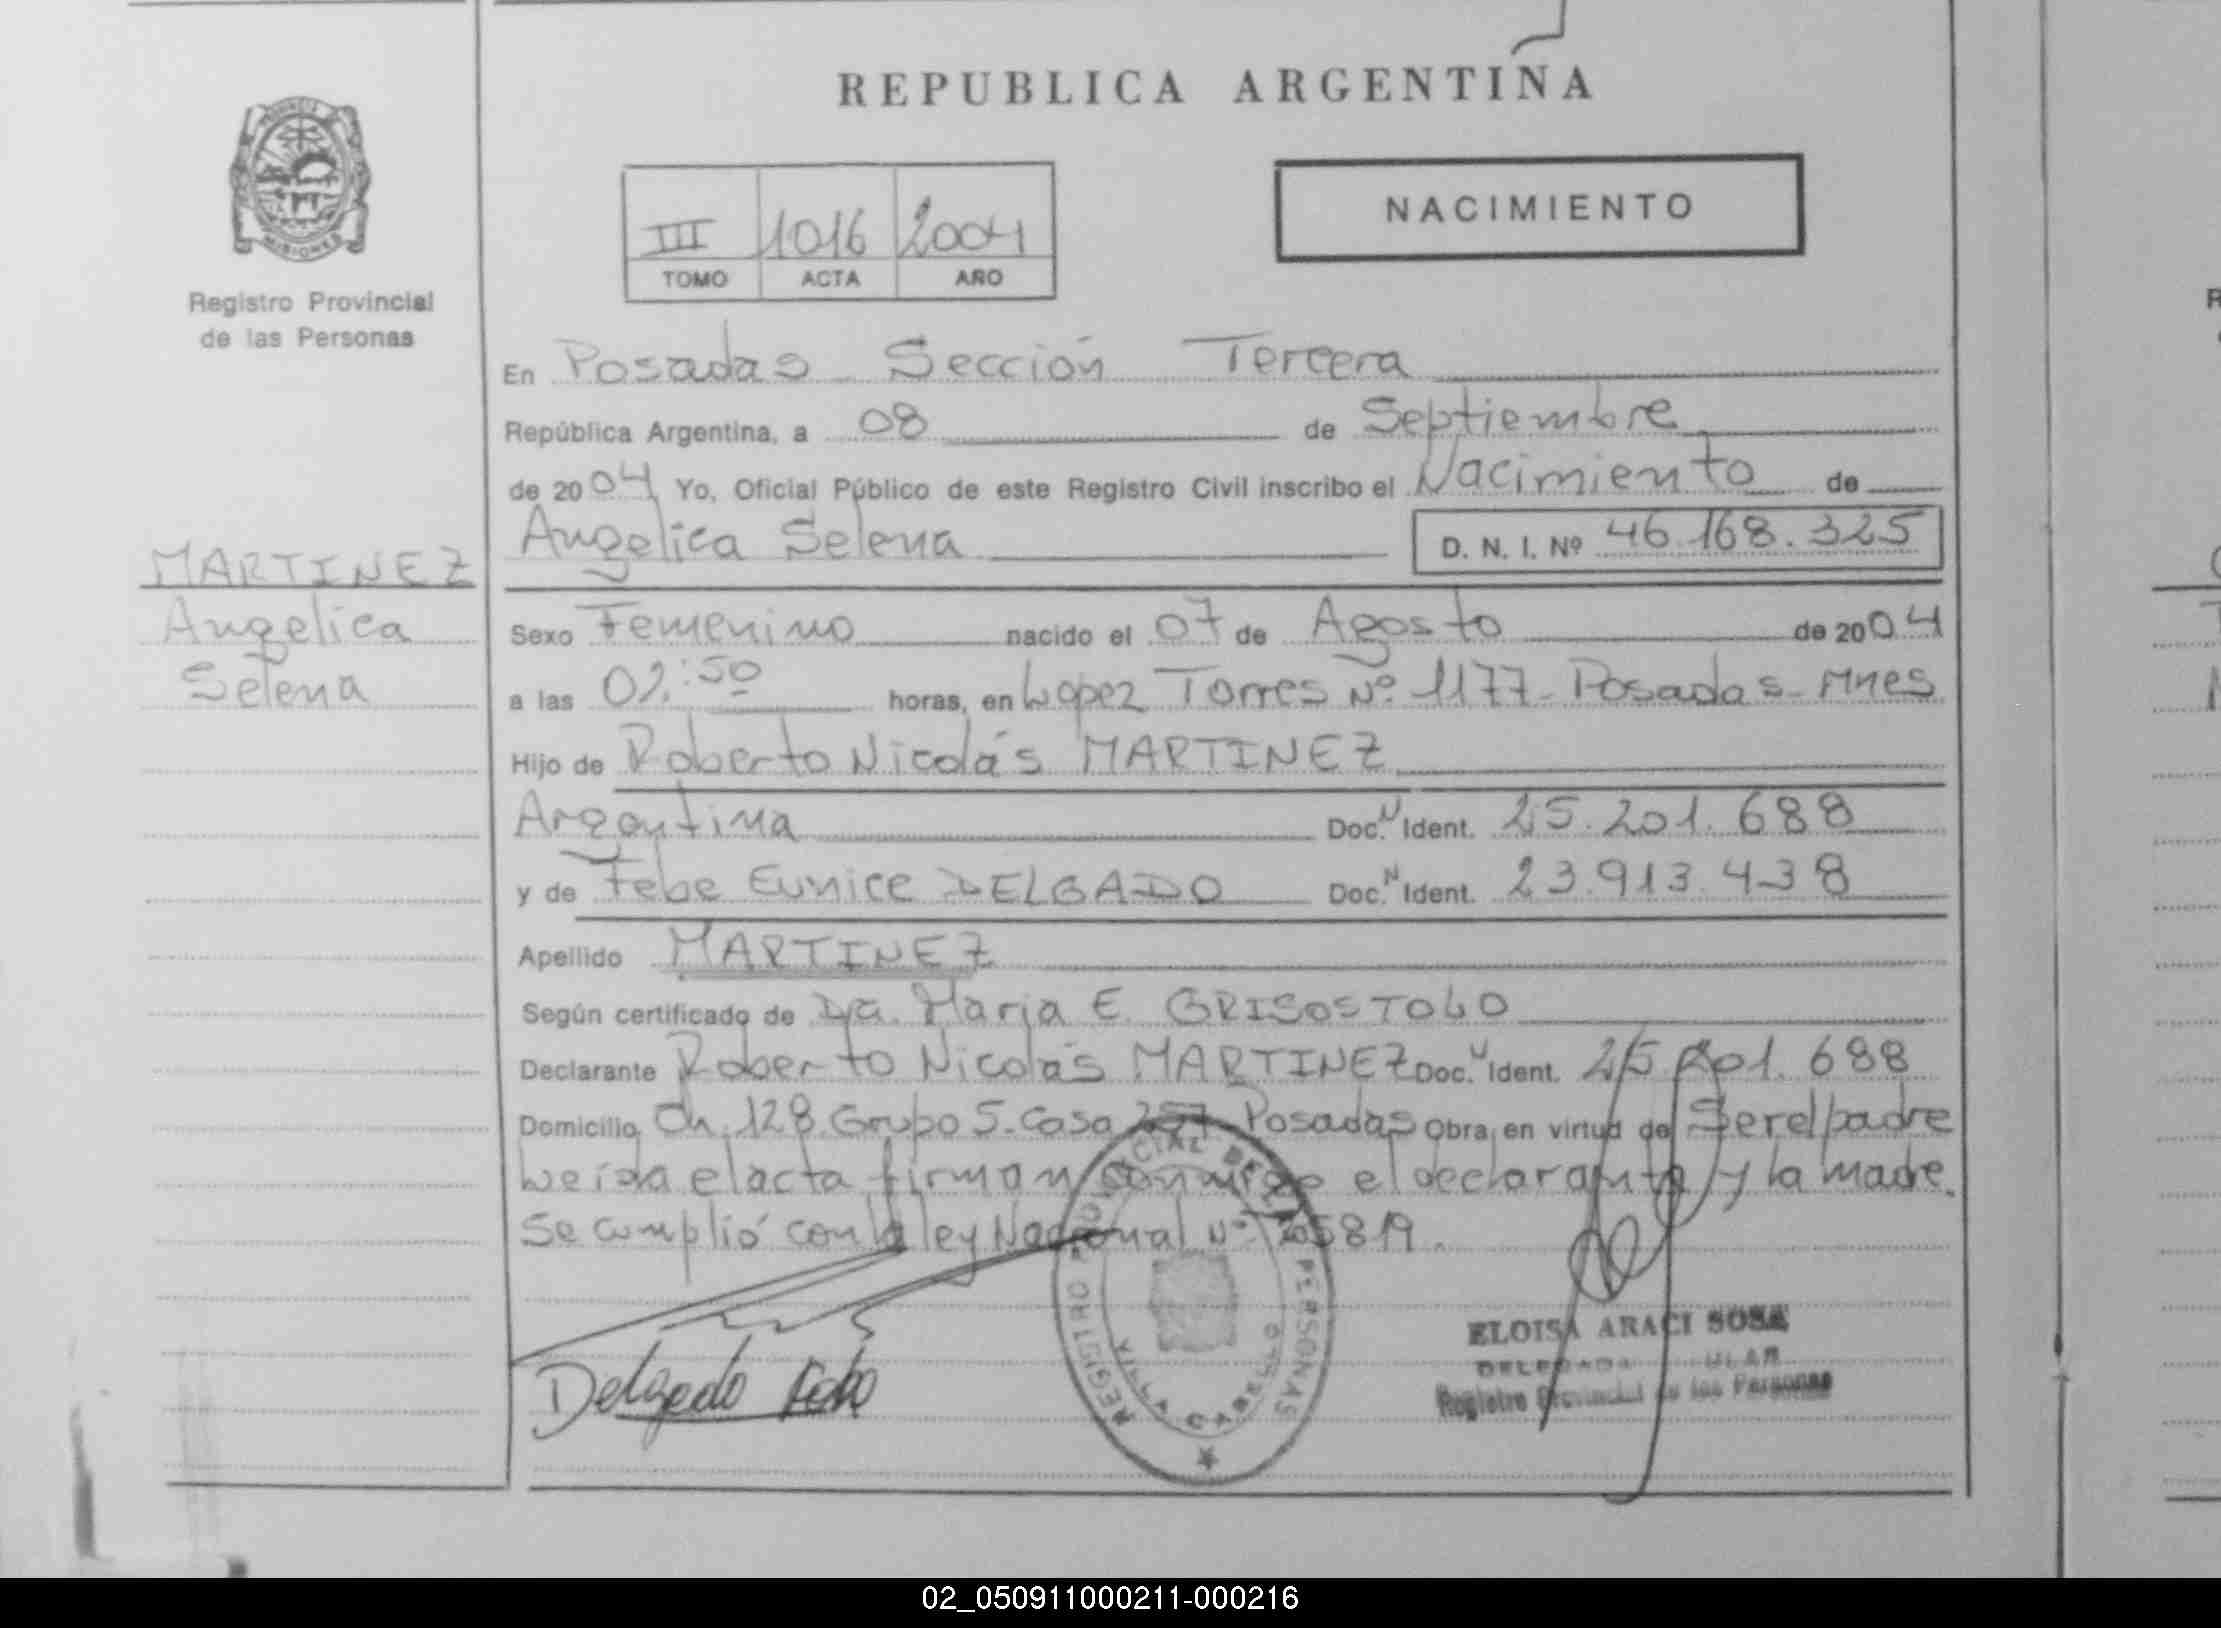 REPUBLICA ARGENTINA
PROVINCIA
MISIONES
Registro Provincial
de las Personas
III 1016 2004
TOMO ACTA AÑO
NACIMIENTO
MARTINEZ
Angelica
Selena
En Posadas Sección Tercera
República Argentina, a 08 de Septiembre
de 2004 Yo, Oficial Público de este Registro Civil inscribo el Nacimiento de
Angelica Selena D. N. I. Nº 46.168.325
Sexo Femenino nacido el 07 de Agosto de 2004
a las 02:50 horas, en Lopez Torres Nº 1177- Posadas- Mnes
Hijo de Roberto Nicolás MARTINEZ
Argentina Doc. N Ident. 25.201.688
y de Febe Eunice DELGADO Doc. N Ident. 23.913.438
Apellido MARTINEZ
Según certificado de Dra. Maria E. GRISOSTOLO
Declarante Roberto Nicolás MARTINEZ Doc. N Ident. 25.201.688
Domicilio Ch. 128. Grupo 5. Casa Posadas Obra, en virtud de Ser el padre
Leída el acta firman conmigo el declarante y la madre.
Se cumplió con la ley Nacional Nº
REGISTRO PROVINCIAL DE LAS PERSONAS
VILLA CABELLO
Delgado Febe
ELOISA ARACI SOSA
Registro Provincial de las Personas
02_050911000211-000216